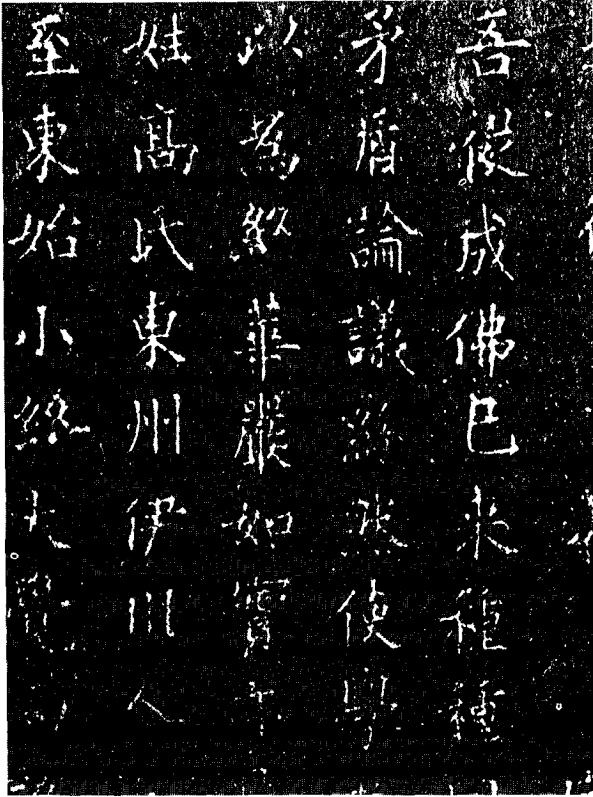 吾從成佛已來種種
矛盾論議紛然使學
以為華嚴如
姓高氏東州伊川人
至東始小終大覺